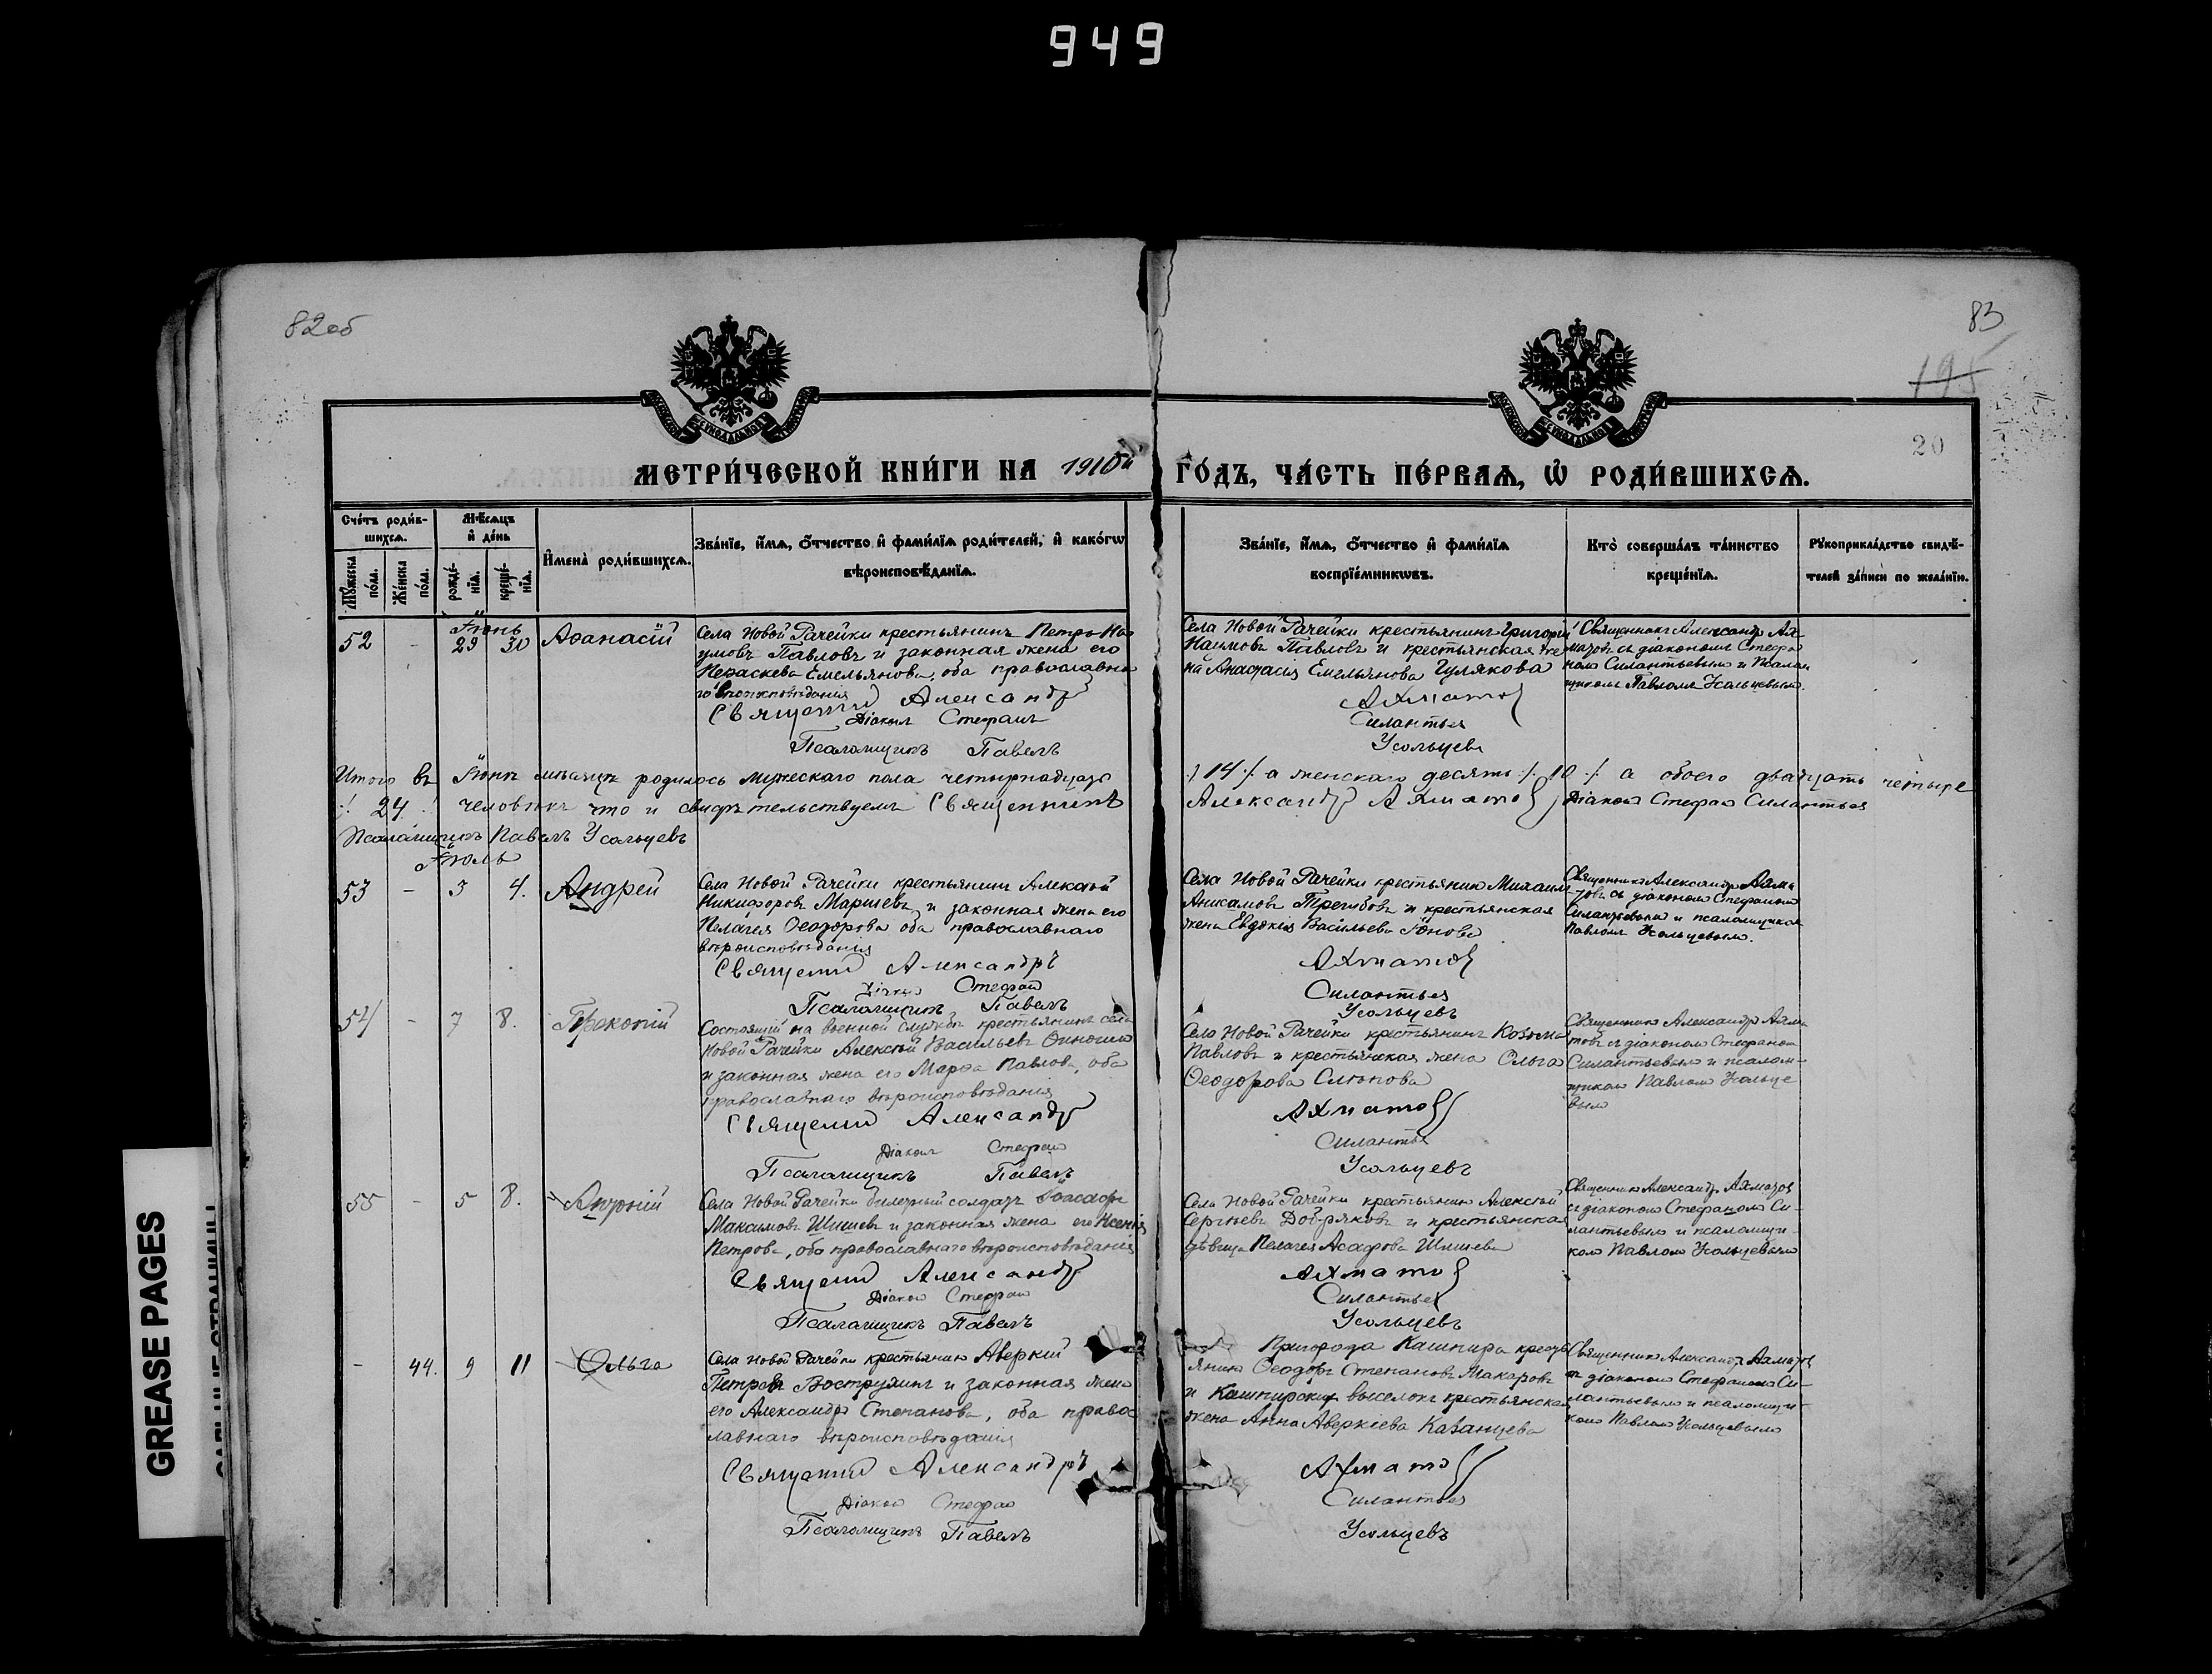 949
82об
83
195
20
МЕТРИ́ЧЕСКОЙ КНИ́ГИ НА 1910й ГО́ДЪ, ЧА́СТЬ ПЕ́РВАѦ, Ѡ РОДИ́ВШИХСѦ.
Сче́тъ роди́в-
шихсѧ.
Мѣ́сѧцъ
и҆ де́нь
Мꙋ́жеска
по́ла.
Же́нска
по́ла.
рожде́-
нїѧ.
креще́-
нїѧ.
И҆мена̀ роди́вшихсѧ.
Зва́нїе, и҆́мѧ, ѻ҆́тчество и҆ фами́лїѧ роди́телей, и҆ како́гѡ
вѣроисповѣ́данїѧ.
Зва́нїе, и҆́мѧ, ѻ҆́тчество и҆ фами́лїѧ
воспрїе́мникѡвъ.
Кто̀ соверша́лъ та́инство
креще́нїѧ.
Рꙋкоприкла́дство свидѣ́-
телей за́писи по жела́нїю.
Іюнь
52 - 29 30 Аѳанасій
Села Новой Рачейки крестьянинъ Петръ На-
умовъ Павловъ и законная жена его
Параскева Емельянова, оба православна
го вѣроисповѣданія
Священникъ Александръ
Діаконъ Стефанъ
Псаломщикъ Павелъ
Села Новой Рачейки крестьянинъ Григорій
Наумовъ Павловъ и крестьянская же
на Анастасія Емельянова Гулякова
Ахматовъ
Силантьевъ
Усольцевъ
Священникъ Александръ Ах-
матовъ съ діакономъ Стефа
номъ Силантьевымъ и Псалом
щикомъ Павломъ Усольцевымъ.
Итого въ Іюнѣ мѣсяцѣ родилось мужескаго пола четырнадцать ⁒ 14 ⁒ а женскаго десять ⁒ 10 ⁒ а обоего двадцать четыре
⁒ 24 ⁒ человѣкъ что и свидѣтельствуемъ Священникъ Александръ Ахматовъ Діаконъ Стефанъ Силантьевъ
Псаломщикъ Павелъ Усольцевъ
Іюль
53 - 3 4. Андрей
Села Новой Рачейки крестьянинъ Алексѣй
Никифоровъ Маршевъ и законная жена его
Пелагея Ѳеодорова оба православнаго
вѣроисповѣданія
Священникъ Александръ
Діаконъ Стефанъ
Псаломщикъ Павелъ
Села Новой Рачейки крестьянинъ Михаилъ
Анисимовъ Трегубовъ и крестьянская
жена Евдокія Васильева Іонова
Ахматовъ
Силантьевъ
Усольцевъ
Священникъ Александръ Ахма
товъ съ діакономъ Стефаномъ
Силантьевымъ и псаломщикомъ
Павломъ Усольцевымъ.
54 - 7 8. Прокопій
Состоящій на военной службѣ крестьянинъ села
Новой Рачейки Алексѣй Васильевъ
и законная жена его Марѳа Павлова, оба
православнаго вѣроисповѣданія
Священникъ Александръ
Діаконъ Стефанъ
Псаломщикъ Павелъ
Села Новой Рачейки крестьянинъ Козьма
Павловъ и крестьянская жена Ольга
Ѳеодорова Слюнова
Ахматовъ
Силантьевъ
Усольцевъ
Священникъ Александръ Ахма
товъ съ діакономъ Стефаномъ
Силантьевымъ и псалом-
щикомъ Павломъ Усольце
вымъ
55 - 5 8. Антоній
Села Новой Рачейки билетный солдатъ Іоасафъ
Максимовъ Шишевъ и законная жена его Ксенія
Петрова, оба православнаго вѣроисповѣданія
Священникъ Александръ
Діаконъ Стефанъ
Псаломщикъ Павелъ
Села Новой Рачейки крестьянинъ Алексѣй
Сергѣевъ Добряковъ и крестьянская
дѣвица Пелагея Асафова Шишева
Ахматовъ
Силантьевъ
Усольцевъ
Священникъ Александръ Ахматовъ
съ діакономъ Стефаномъ Си-
лантьевымъ и псаломщи-
комъ Павломъ Усольцевымъ
- 44. 9 11 Ольга
Села Новой Рачейки крестьянинъ Аверкій
Петровъ Вострухинъ и законная жена
его Александра Степанова, оба правос
лавнаго вѣроисповѣданія
Священникъ Александръ
Діаконъ Стефанъ
Псаломщикъ Павелъ
Пригорода Кашпира кресть
янинъ Ѳеодоръ Степановъ Макаровъ
и Кашпирскихъ выселокъ крестьянская
жена Анна Аверкіева Казанцева
Ахматовъ
Силантьевъ
Усольцевъ
Священникъ Александръ Ахматовъ
съ діакономъ Стефаномъ Си-
лантьевымъ и псаломщи-
комъ Павломъ Усольцевымъ
GREASE PAGES